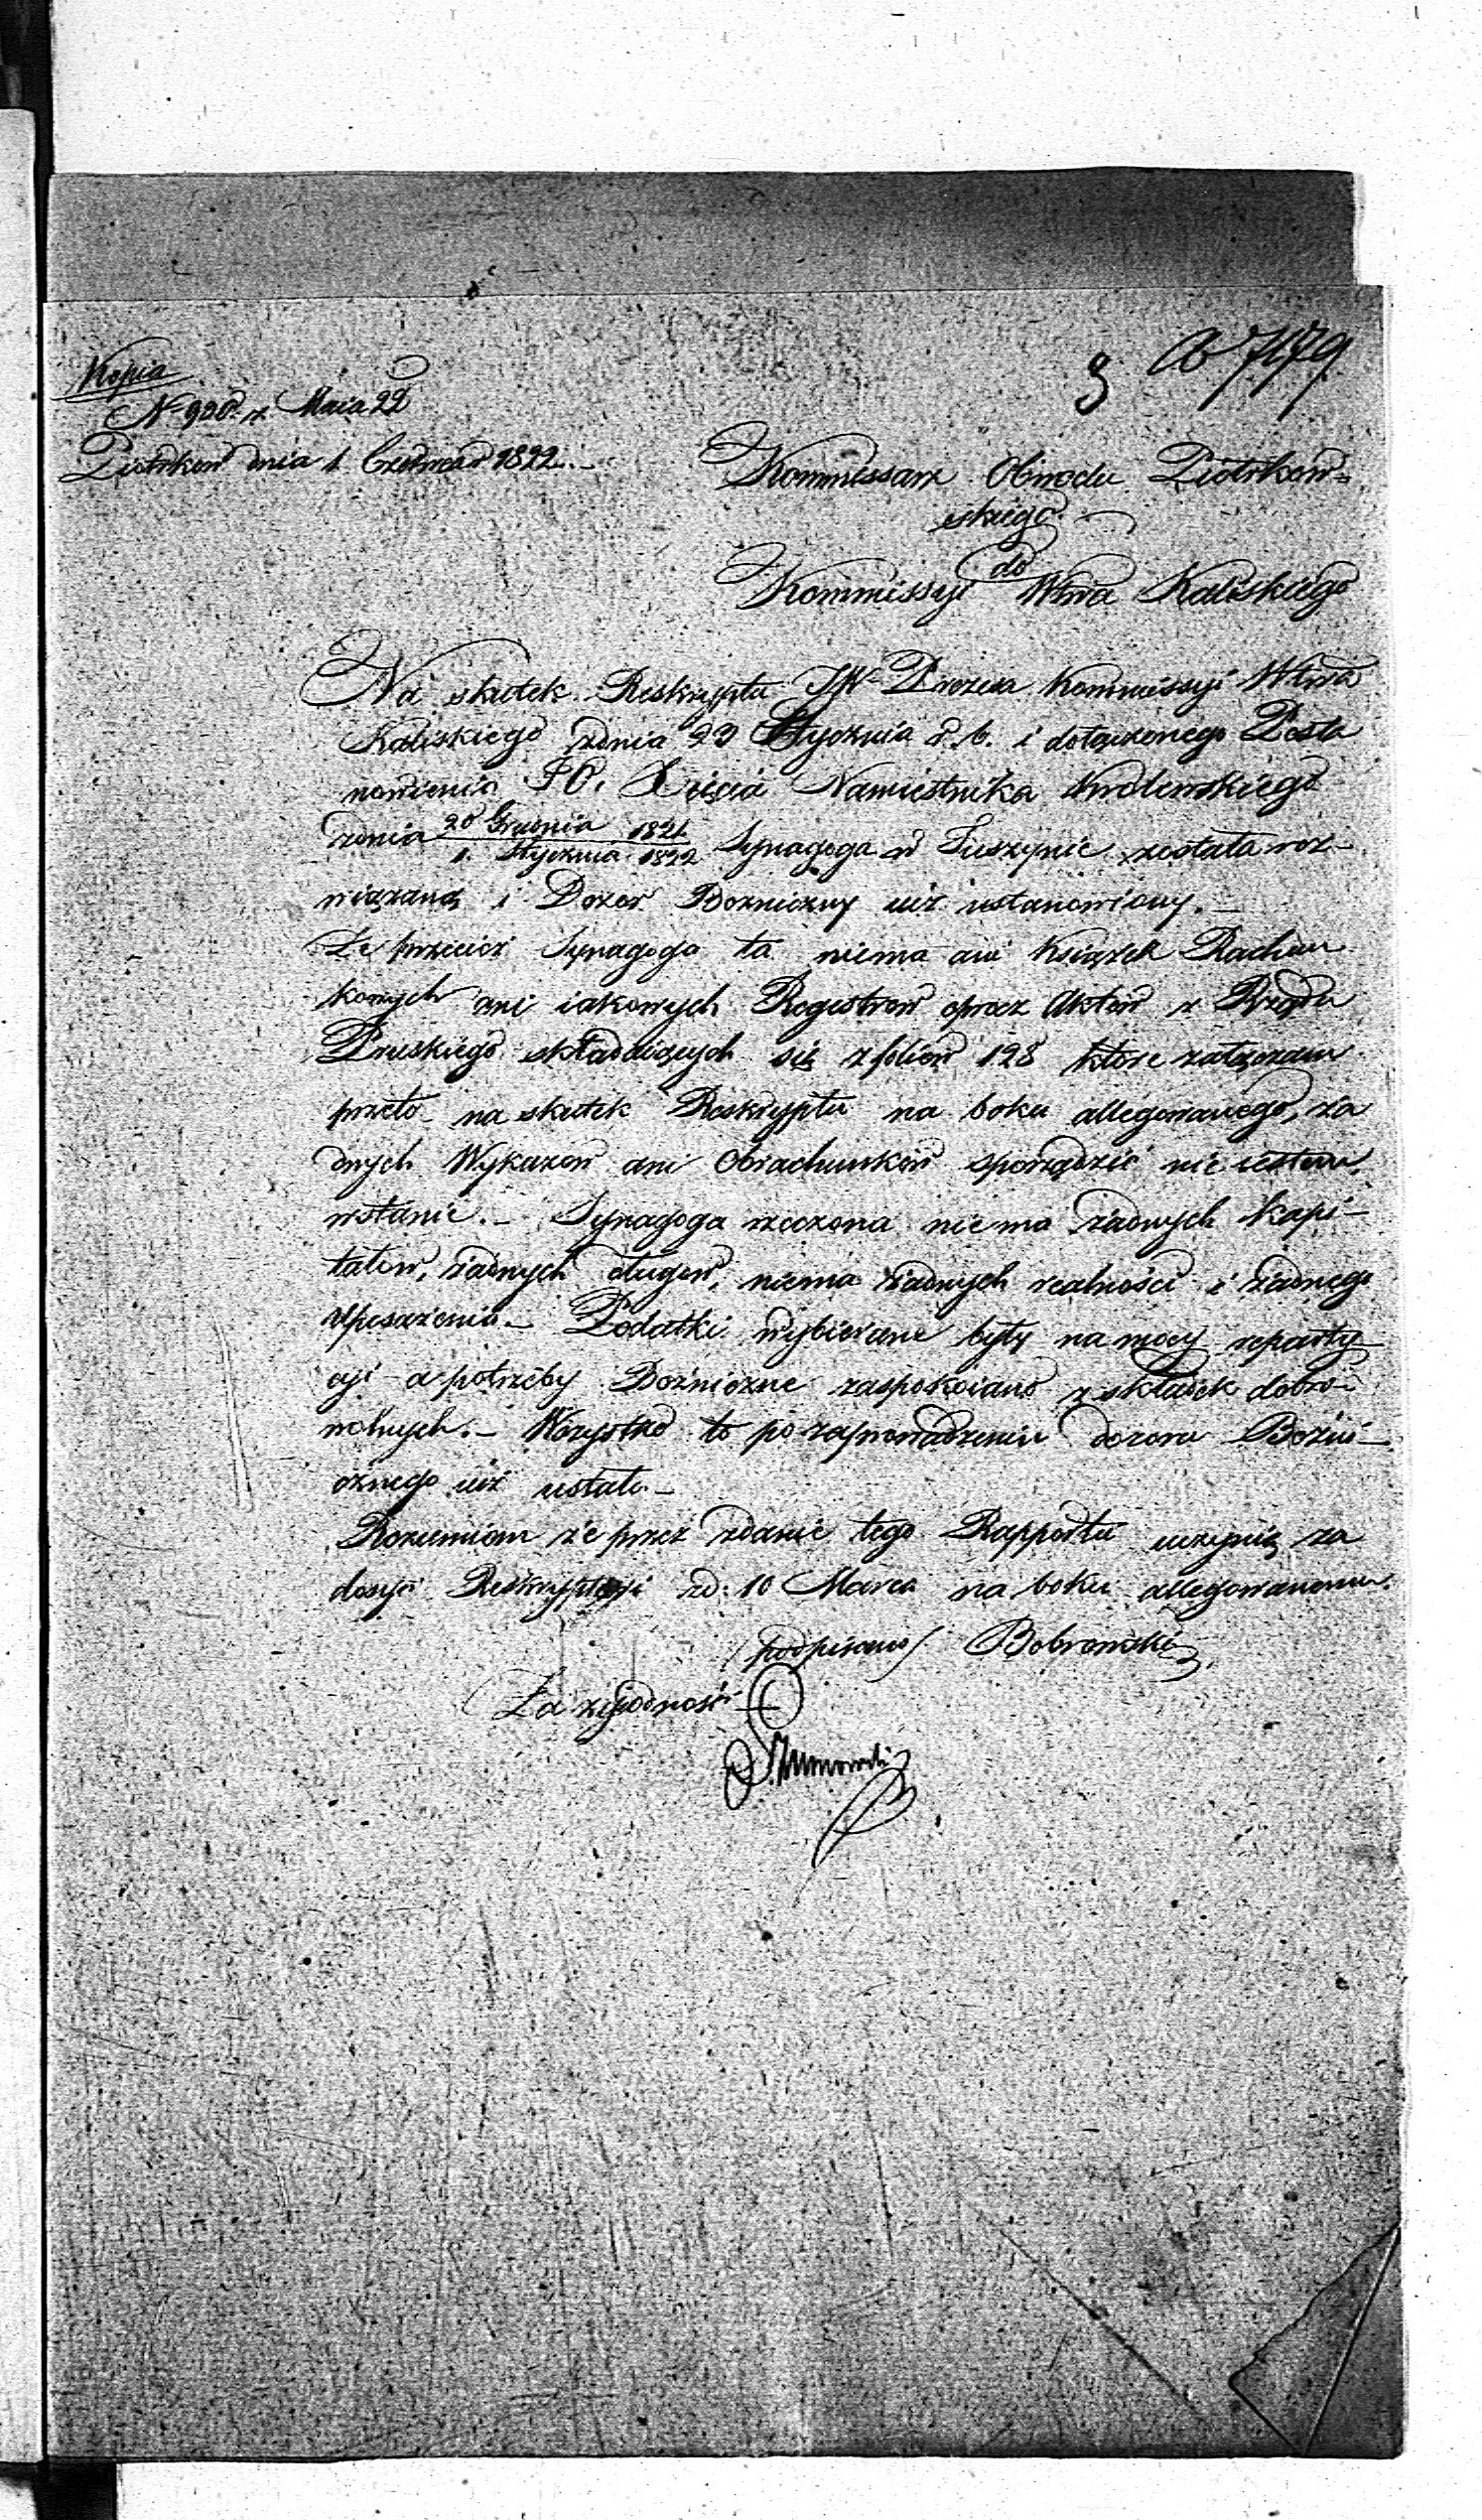 Kopia
3 ad 7479
N 920. z Maia 22
Piotrkow dnia 1 Czerwca 1822.
Kommissarz Obwodu Piotrkow=
skiego
do
Kommissyi Wtwa Kaliskiego
Na skutek Reskryptu JW Prezesa Kommissyi Wtwa
Kaliskiego zdnia 23 Stycznia r. b. i dołączonego Posta
nowienia JO. Xięcia Namiestnika Krolewskiego
zdnia 20 Grudnia 1821
1. Stycznia 1822 Synagoga w Tuszynie została roz-
wiązaną i Dozor Bozniczny iuż ustanowiony.
Ze przecież Synagoga ta niema ani Książek Rachun
kowych ani iakowych Regestrow oprocz Aktow z Rządu
Pruskiego składaiących się z foliow 128 ktore załączam
przeto na skutek Reskryptu na boku allegowanego, ża
dnych Wykazow ani Obrachunków sporządzić nie iestem
wstanie. - Synagoga rzeczona niema żadnych Kapi-
tałow, żadnych długow, niema żadnych realności i żadnego
Uposażenia - Podatki wybierane były na mocy reparty
cyi a potrzeby Boźniczne zaspokoiano z składek dobro-
wolnych. - Wszystko to po zaprowadzeniu dozoru Boźni-
cznego iuż ustało -
Rozumiem że przez zdanie tego Rapportu uczynię za
dosyć zd: 10 Marca na boku allegowanemu.
/podpisano/ Bobrowski
Za zgodność